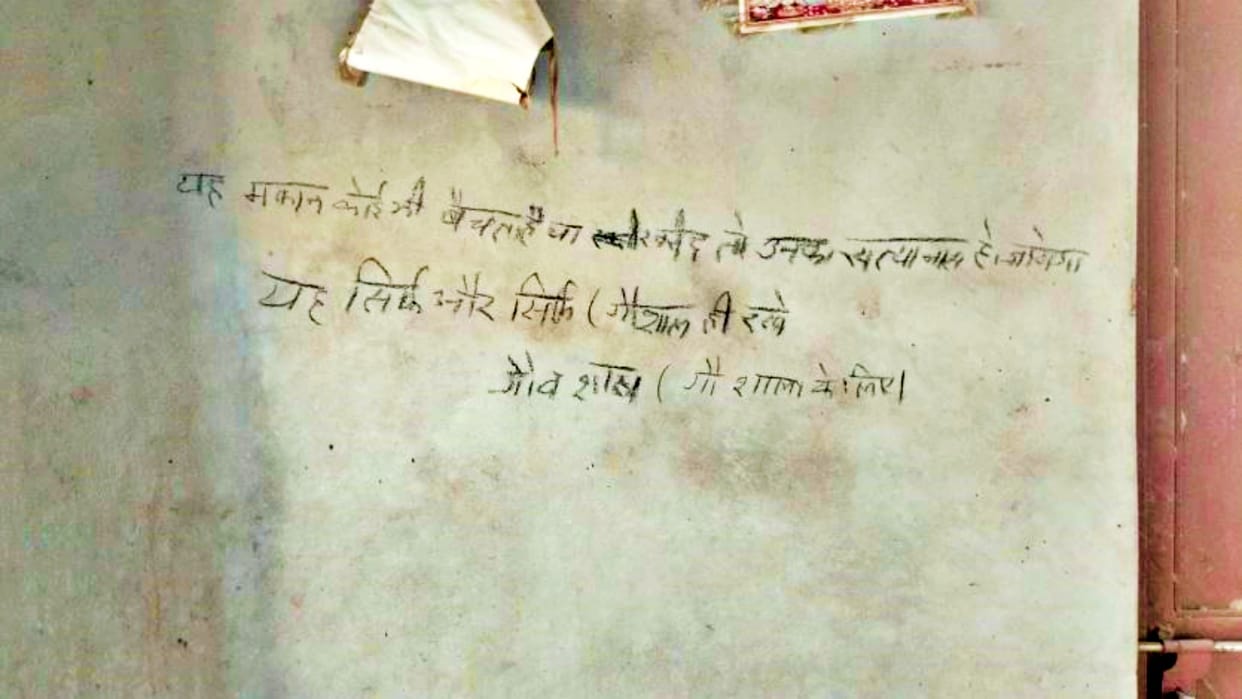 यह मकान कोई भी बैचता है या खरीद तो उनका सत्यानास हो जायेगा
यह सिर्फ और सिर्फ ( गौशाल ही रखे
गौव शाला ( गौ शाला के लिए।